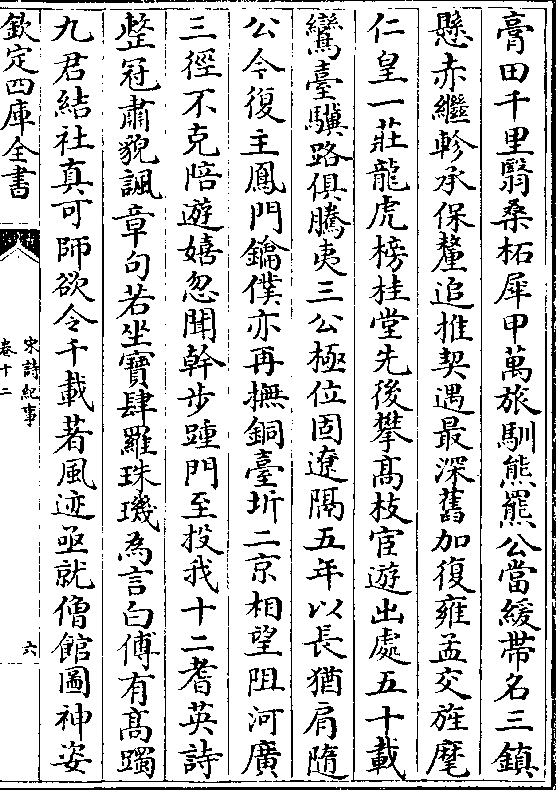 膏田千里翳桑柘犀甲萬旅馴熊羆公當緩帶名三鎮
懸赤繼軫承保釐追推契遇最深舊加復雍孟交旌麾
仁皇一莊龍虎榜桂堂先後攀髙枝宦遊出處五十載
鸞臺驥路俱騰夷三公極位固遼隔五年以長猶肩隨
公今復主鳳門鑰僕亦再撫銅臺圻二京相望阻河廣
三徑不克陪遊嬉忽聞幹步踵門至投我十二耆英詩
整冠肅貌諷章句若坐寶肆羅珠璣為言白傅有髙躅
九君結社真可師欲令千載著風迹亟就僧館圖神姿
欽定四庫全書
宋詩紀事
卷十二
六